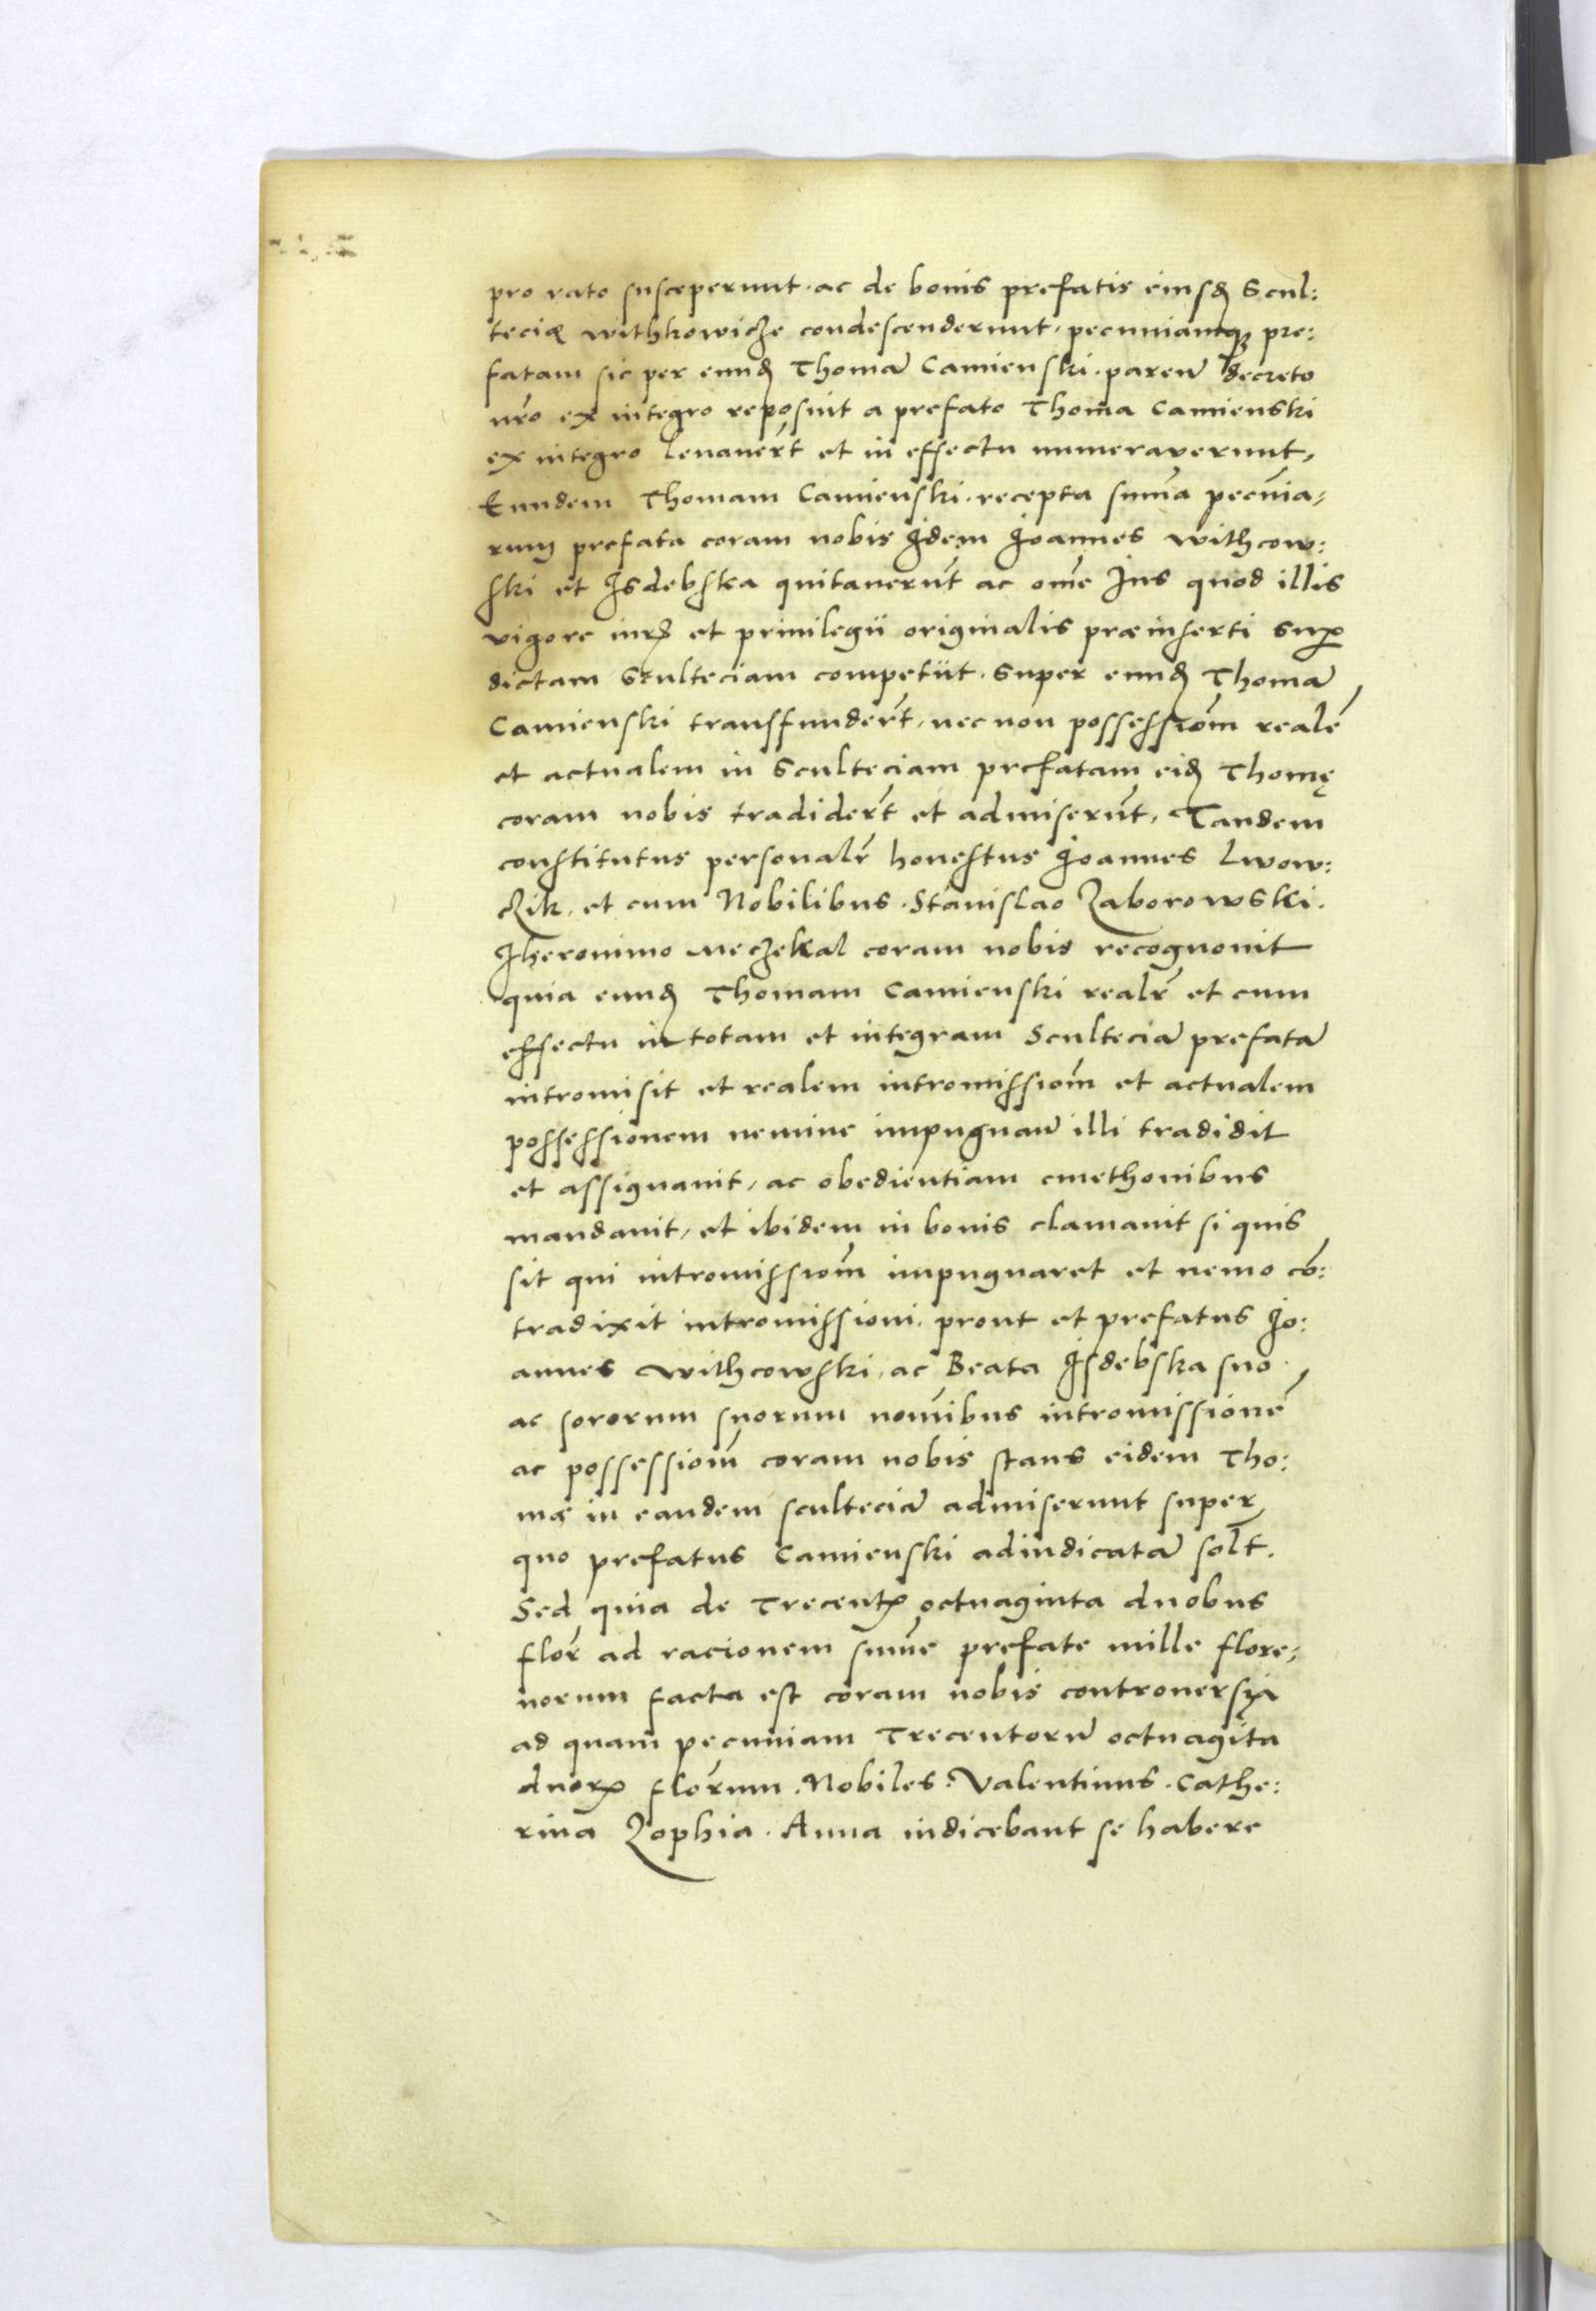 pro rato susceperunt. ac de bonis prefatis eiusd Scul:
teciæ withkowicze condescenderunt, pecuniamqz pre:
fatam sic per eund Thomã Camienski. paren̄ decreto
nr̃o ex integro reposuit a prefato Thoma Camienski
ex integro leuauer̃t et in effectu numeraverunt,
Eundem Thomam Camienski. recepta sum̃a pecũia,
rum prefata coram nobis Idem Joannes withcow:
ski et Isdebska quitauerũt ac om̃e Jus quod illis
vigore iur et priuilegii originalis præinserti sup
dictam Sculteciam competiit. super eund Thomã
Camienski transfunder̃t, nec non possessiom̃ realẽ
et actualem in Sculteciam prefatam eid Thomę
coram nobis tradider̃t et admiserũt, Tandem
constitutus personalr̃ honestus Joannes Lwow:
czik. et cum Nobilibus. Stanislao Zaborowski.
Iheronimo meczekal coram nobis recognouit
quia eund Thomam Camienski realr̃ et cum
effectu in totam et integram Scultecia᷉ prefatã
intromisit et realem intromissiom̃ et actualem
possessionem nemine impugnan̄ illi tradidit
et assignauit, ac obedientiam cmethonibus
mandauit, et ibidem in bonis clamauit si quis
sit qui intromissiom̃ impugnaret et nemo cõ:
tradixit intromissioni. prout et prefatus Jo:
annes withcowski, ac Beata Isdebska suo
ac sororum suorum nom̃ibus intromissionẽ
ac possessiom̃ coram nobis stans eidem Tho:
mæ in eandem sculteciã admiserunt super
quo prefatus Camienski adiudicatã solt.
Sed quia de Trecent octuaginta duobus
flor̃ ad racionem sum̃e prefate mille flore,
norum facta est coram nobis controuersia
ad quam pecuniam Trecentorũ octuagĩta
duor flor̃um. Nobiles. Valentinus. Cathe:
rina Zophia. Anna indicebant se habere